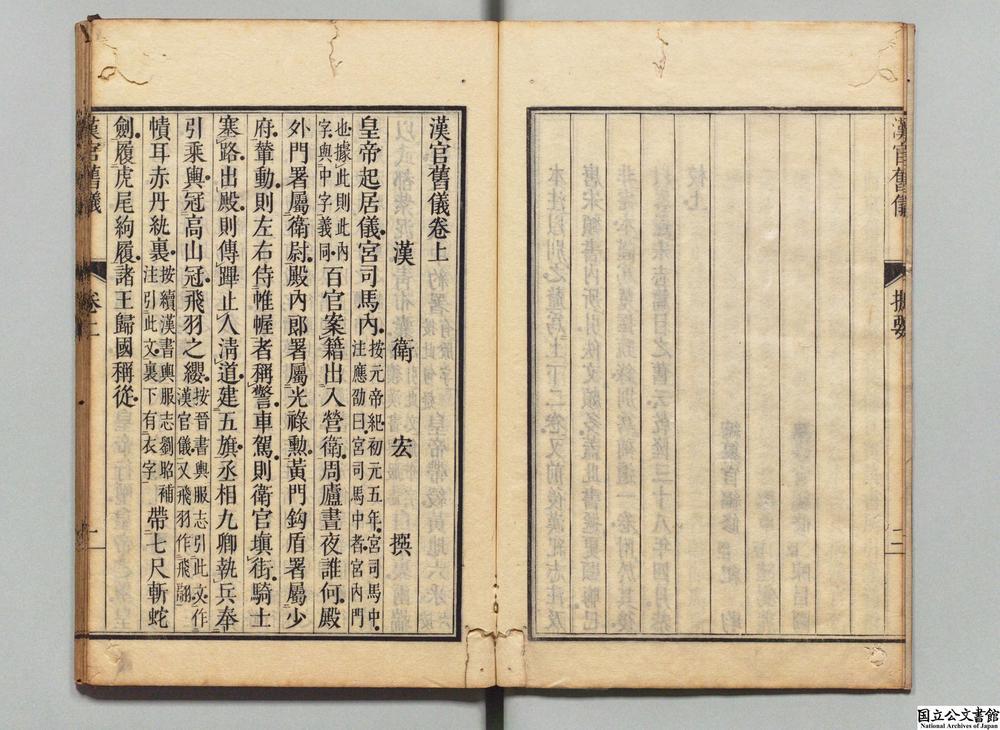 漢官舊儀 提要 二
漢官舊儀卷上
漢 衛 宏 撰
皇帝起居儀宮司馬內按元帝紀初元五年宮司馬中注應劭曰宮司馬中者宮內門
也據此則此內字與中字義同百官案籍出入營衛周廬晝夜誰何殿
外門署屬衛尉殿內郎署屬光祿勳黃門鈎盾署屬少
府輦動則左右侍帷幄者稱警車駕則衛官塡街騎士
塞路出殿則傳蹕止人清道建五旗丞相九卿執兵奉
引乘輿冠高山冠飛羽之纓按晉書輿服志引此文作漢官儀又飛羽作飛翮
幘耳赤丹紈裏按續漢書輿服志劉昭補注引此文裏下有衣字帶七尺斬蛇
劍履虎尾絇履諸王歸國稱從
漢官舊儀 卷上 一
国立公文書館
National Archives of Japan